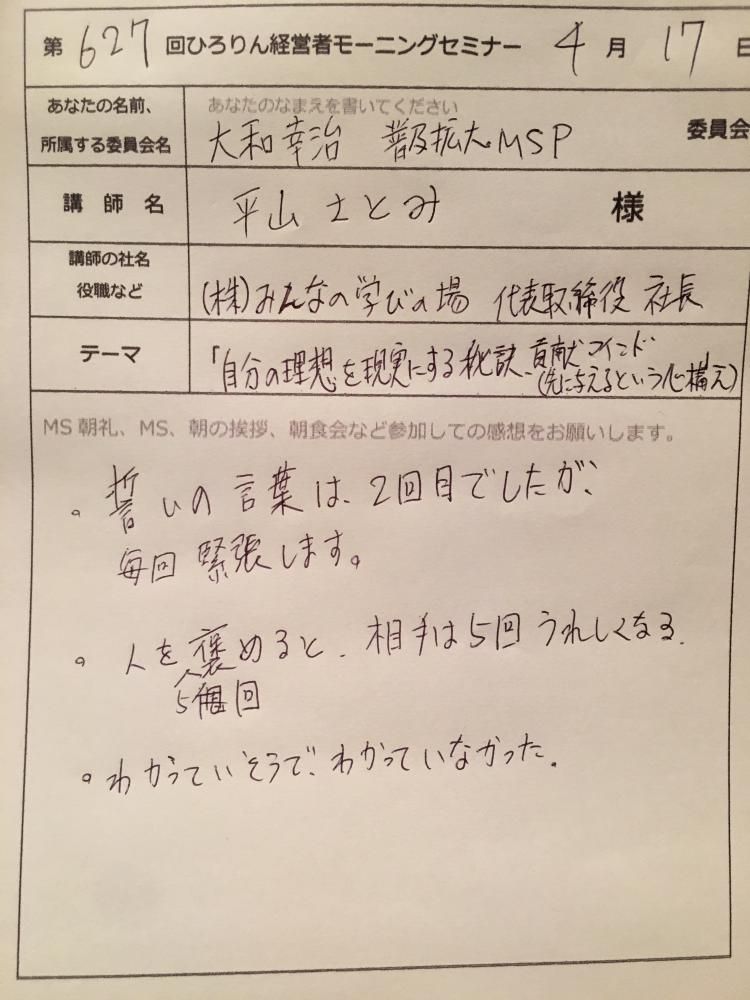 第 627 回ひろりん経営者モーニングセミナー 4 月 17 日
あなたの名前、
所属する委員会名
あなたのなまえを書いてください
大和幸治 普及拡大MSP 委員会
講 師 名
平山 さとみ 様
講師の社名
役職など
(株)みんなの学びの場 代表取締役 社長
テーマ
「自分の理想を現実にする秘訣、貢献マインド
(先に与えるという心構え)
MS 朝礼、MS、朝の挨拶、朝食会など参加しての感想をお願いします。
。誓いの言葉は、2回目でしたが、
毎回緊張します。
。人を褒めると、相手は5回うれしくなる。
5回
。わかっていそうで、わかっていなかった。